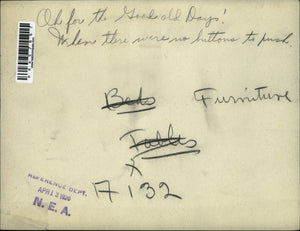 Oh for the Good old Days!
When there were no buttons to push.
Beds Furniture
Tables
X
17132
REFERENCE DEPT.
N. E. A.